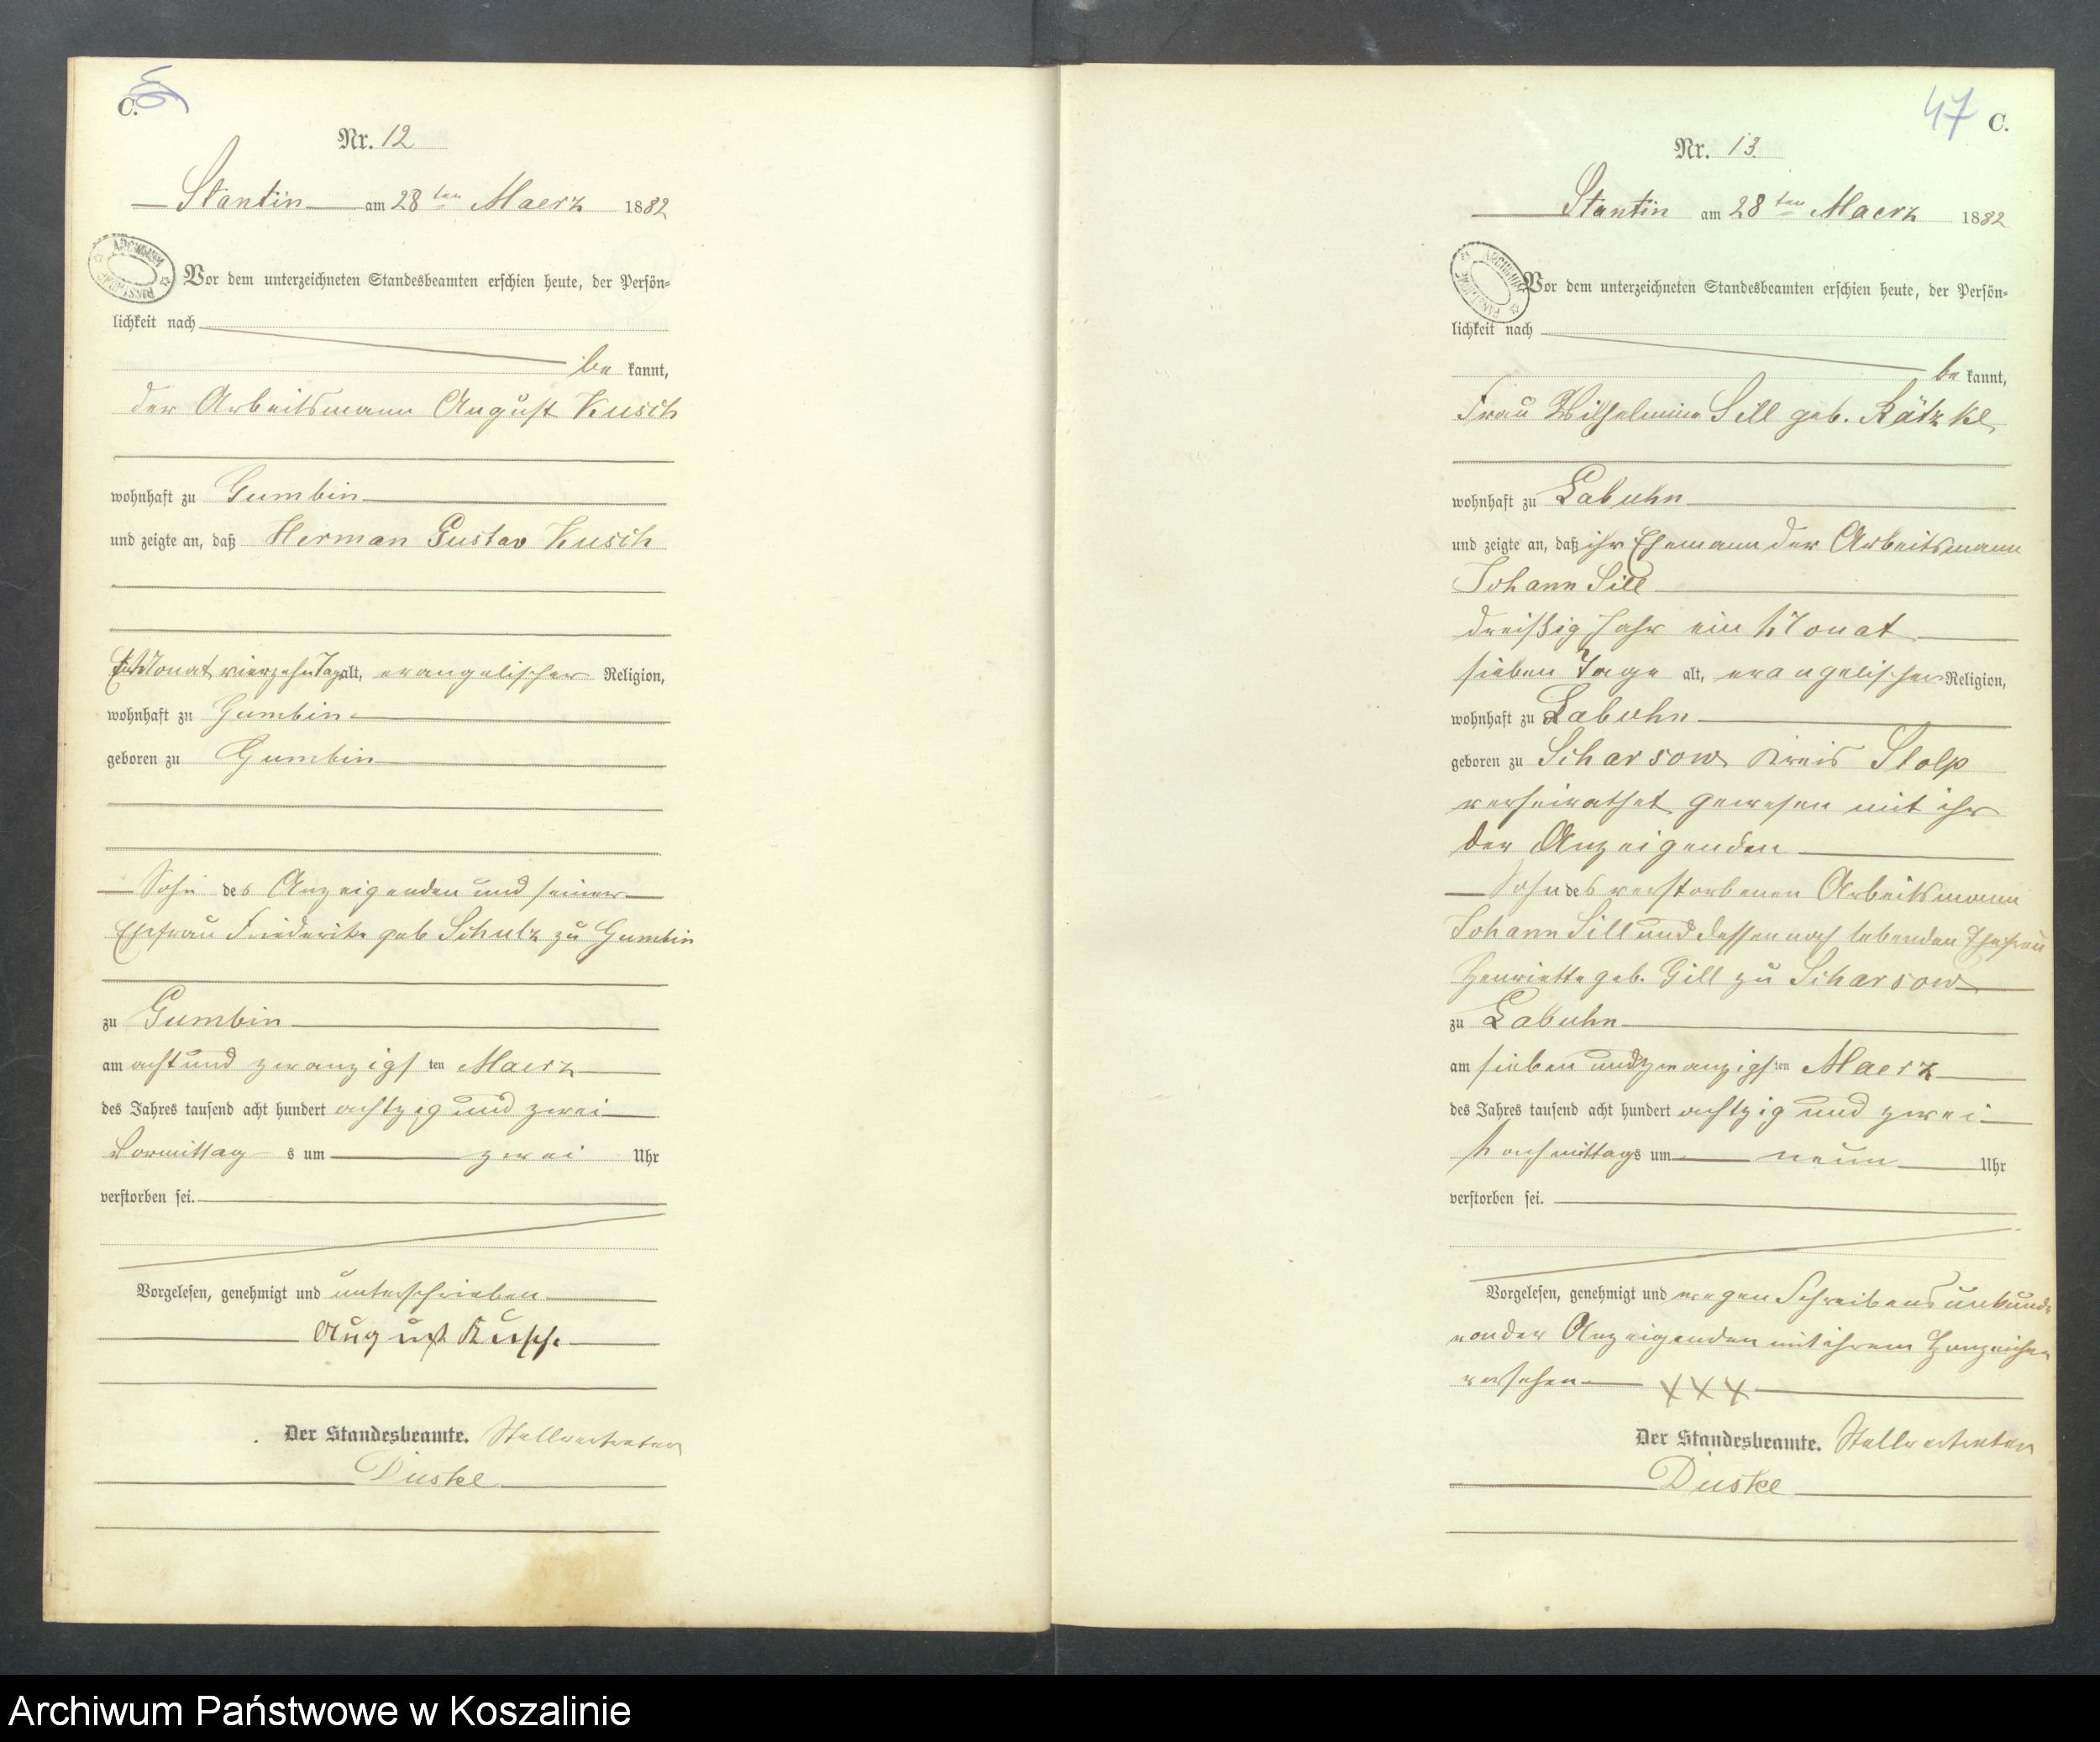 C.
Nr. 12
Stantin am 28ten Maerz 1882
ARCHIWUM
Vor dem unterzeichneten Standesbeamten erschien heute, der Persön-
lichkeit nach
be kannt,
der Arbeitsmann August Kusch
wohnhaft zu Gumbin
und zeigte an, daß Herman Gustav Kusch
Ein Monat vierzehn Tage alt, evangelischer Religion,
wohnhaft zu Gumbin
geboren zu Gumbin
Sohn des Anzeigenden und seiner
Ehefrau Friederike geb Schulz zu Gumbin
zu Gumbin
am acht und zwanzigsten Maerz
des Jahres tausend acht hundert achtzig und zwei
Vormittags um zwei Uhr
verstorben sei.
Vorgelesen, genehmigt und unterschrieben
August Kusch
Der Standesbeamte. Stellvertreter
Duske
47 C.
Nr. 13
Stantin am 28ten Maerz 1882
ARCHIWUM
Vor dem unterzeichneten Standesbeamten erschien heute, der Persön-
lichkeit nach
be kannt,
Frau Wilhelmine Sill geb. Rätzke
wohnhaft zu Labuhn
und zeigte an, daß ihr Ehemann der Arbeitsmann
Johann Sill
dreißig Jahr ein Monat
sieben Tage alt, evangelischer Religion,
wohnhaft zu Labuhn
geboren zu Scharsow Kreis Stolp
verheirathet gewesen mit ihr
der Anzeigenden
Sohn des verstorbenen Arbeitsmann
Johann Sill und dessen noch lebenden Ehefrau
Henriette geb. Gill zu Scharsow
zu Labuhn
am sieben und zwanzigsten Maerz
des Jahres tausend acht hundert achtzig und zwei
Nachmittags um neun Uhr
verstorben sei.
Vorgelesen, genehmigt und wegen Schreibensunkunde
von der Anzeigenden mit ihrem Handzeichen
versehen XXX
Der Standesbeamte. Stellvertreter
Duske
Archiwum Państwowe w Koszalinie